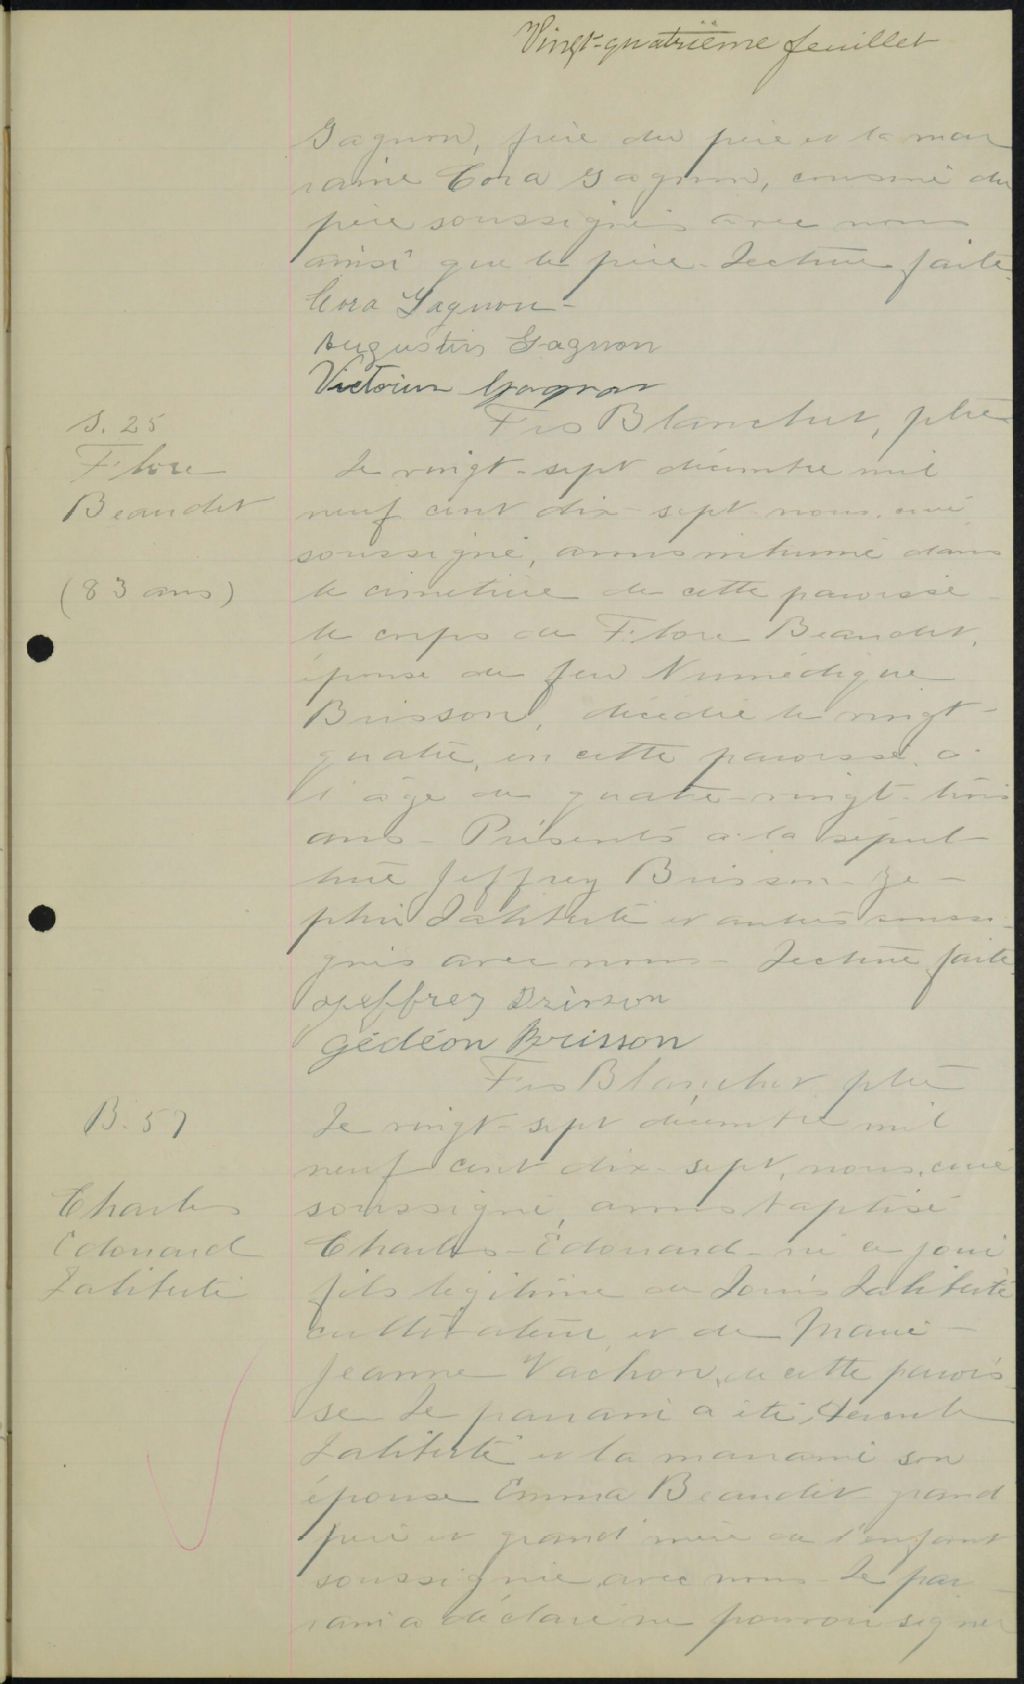 Vingt-quatrième feuillet
Gagnon, frère du père et la mar
raine Cora Gagnon, cousine du
père soussignés avec nous
ainsi que le père. Lecture faite.
Cora Gagnon
Augustin Gagnon
Victorien Gagnon
Frs Blanchet, ptre
S. 25
Flore
Beaudet
(83 ans)
Le vingt-sept décembre mil
neuf cent dix-sept nous, curé
soussigné, avons inhumé dans
le cimetière de cette paroisse
le corps de Flore Beaudet,
épouse de feu Numédique
Brisson, décédée le vingt-
quatre, en cette paroisse, à
l'âge de quatre-vingt-trois
ans - Présents à la sépul
ture Jeffrey Brisson - Zé-
phir Laliberté et autres soussi-
gnés avec nous - Lecture faite.
Jeffrey Brisson
Gédéon Brisson
Frs Blanchet ptre
B. 57
Charles
Edouard
Laliberté
Le vingt-sept décembre mil
neuf cent dix-sept, nous, curé
soussigné, avons baptisé
Charles-Edouard né ce jour
fils légitime de Louis Laliberté
cultivateur et de Marie-
Jeanne Vachon, de cette parois-
se Le parrain a été
Laliberté et la marraine son
épouse Emma Beaudet grand
père et grand'mère de l'enfant
soussignée avec nous - Le par-
rain a déclaré ne pouvoir signer